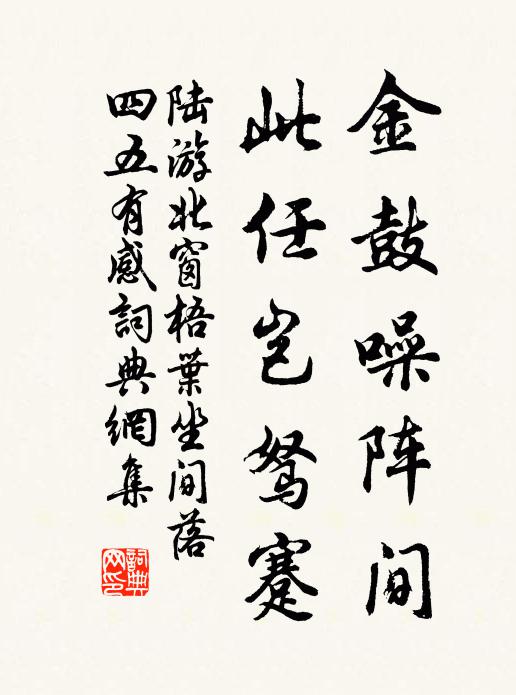 金鼓噪阵间
此任岂驽蹇
陆游北窗梧葉坐间落
四五有感詞典網集
詞典网印